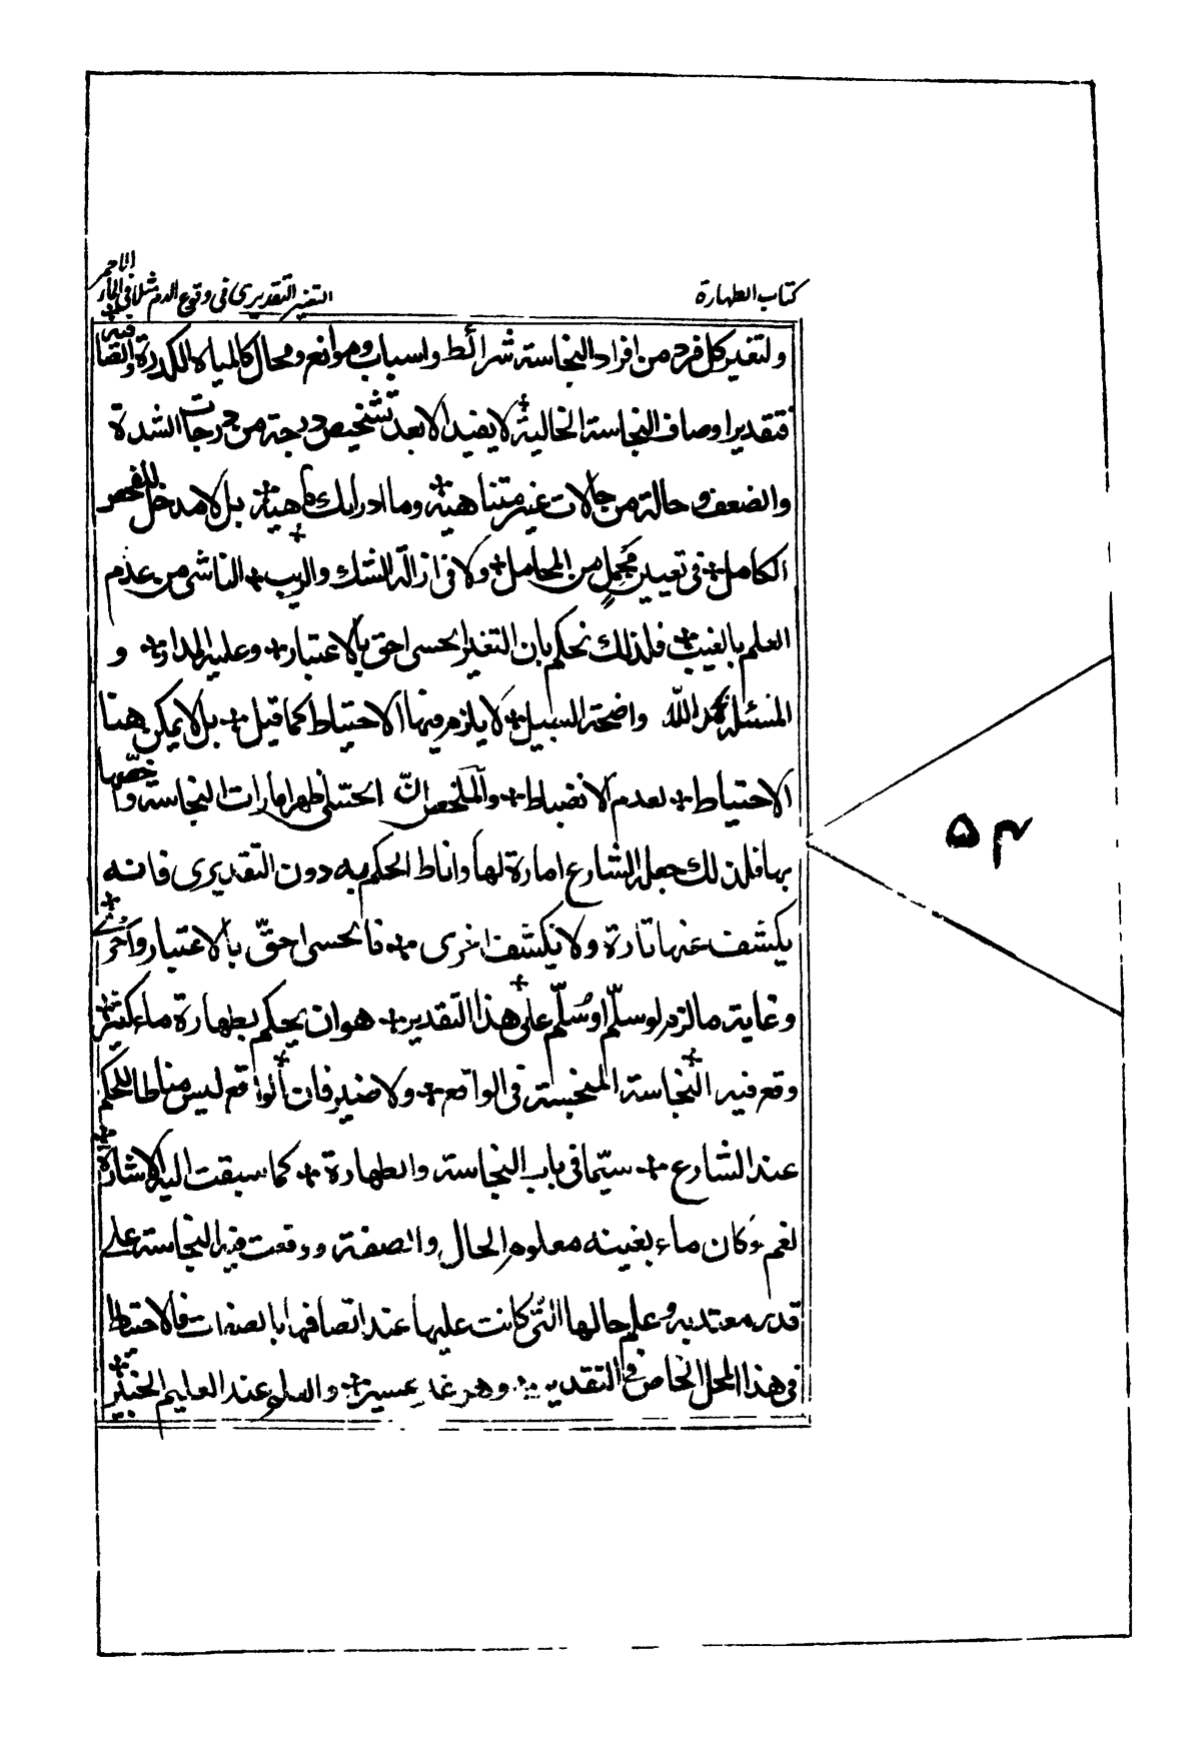 كتاب الطهارة
التغير التقديرى فى وقوع الدم مثلا فى الماء الاحمر
ولتغير كل فرد من افراد النجاسة شرائط واسباب وموانع ومحال كالمياه الكدرة والصافية
فتقدير اوصاف النجاسة الخالية لا يفيد الا بعد تشخيص درجة من درجات الشدة
والضعف و حالة من حالات غير متناهية وما ادرىك ما هية بل لا مدخل للفحص
الكامل فى تعيين محمل من المحامل ولا فى ازالة الشك والريب الناشى من عدم
العلم بالغيب فلذلك نحكم بان التغير الحسى احق بالاعتبار وعليه المدار و
المسئلة بحمد الله واضحة السبيل لا يلزم فيها الاحتياط كما قيل بل لا يمكن هنا
الاحتياط لعدم الانضباط والملخص انّ الحسّى اظهر امارات النجاسة واخصّها
بها فلذلك جعله الشارع امارة لها واناط الحكم به دون التقديرى فانه
يكشف عنها تارة ولا يكشف اخرى فالحسى احقّ بالاعتبار واحرى
وغاية ما لزم لو سلّم او سُلّم على هذا التقدير هو ان يحكم بطهارة ماء كثير
وقع فيه النجاسة المنجسة فى الواقع ولا ضير فان الواقع ليس مناطا للحكم
عند الشارع سيّما فى باب النجاسة والطهارة كما سبقت اليه الاشارة
نعم لو كان ماء بعينه معلوم الحال والصفة ووقعت فيه النجاسة على
قدر معتد به و علم حالها التى كانت عليها عند اتصافها بالصفات فالاحتياط
فى هذا المحل الخاص فى التقدير وهو غير عسير والعلم عند العليم الخبير
٥٣